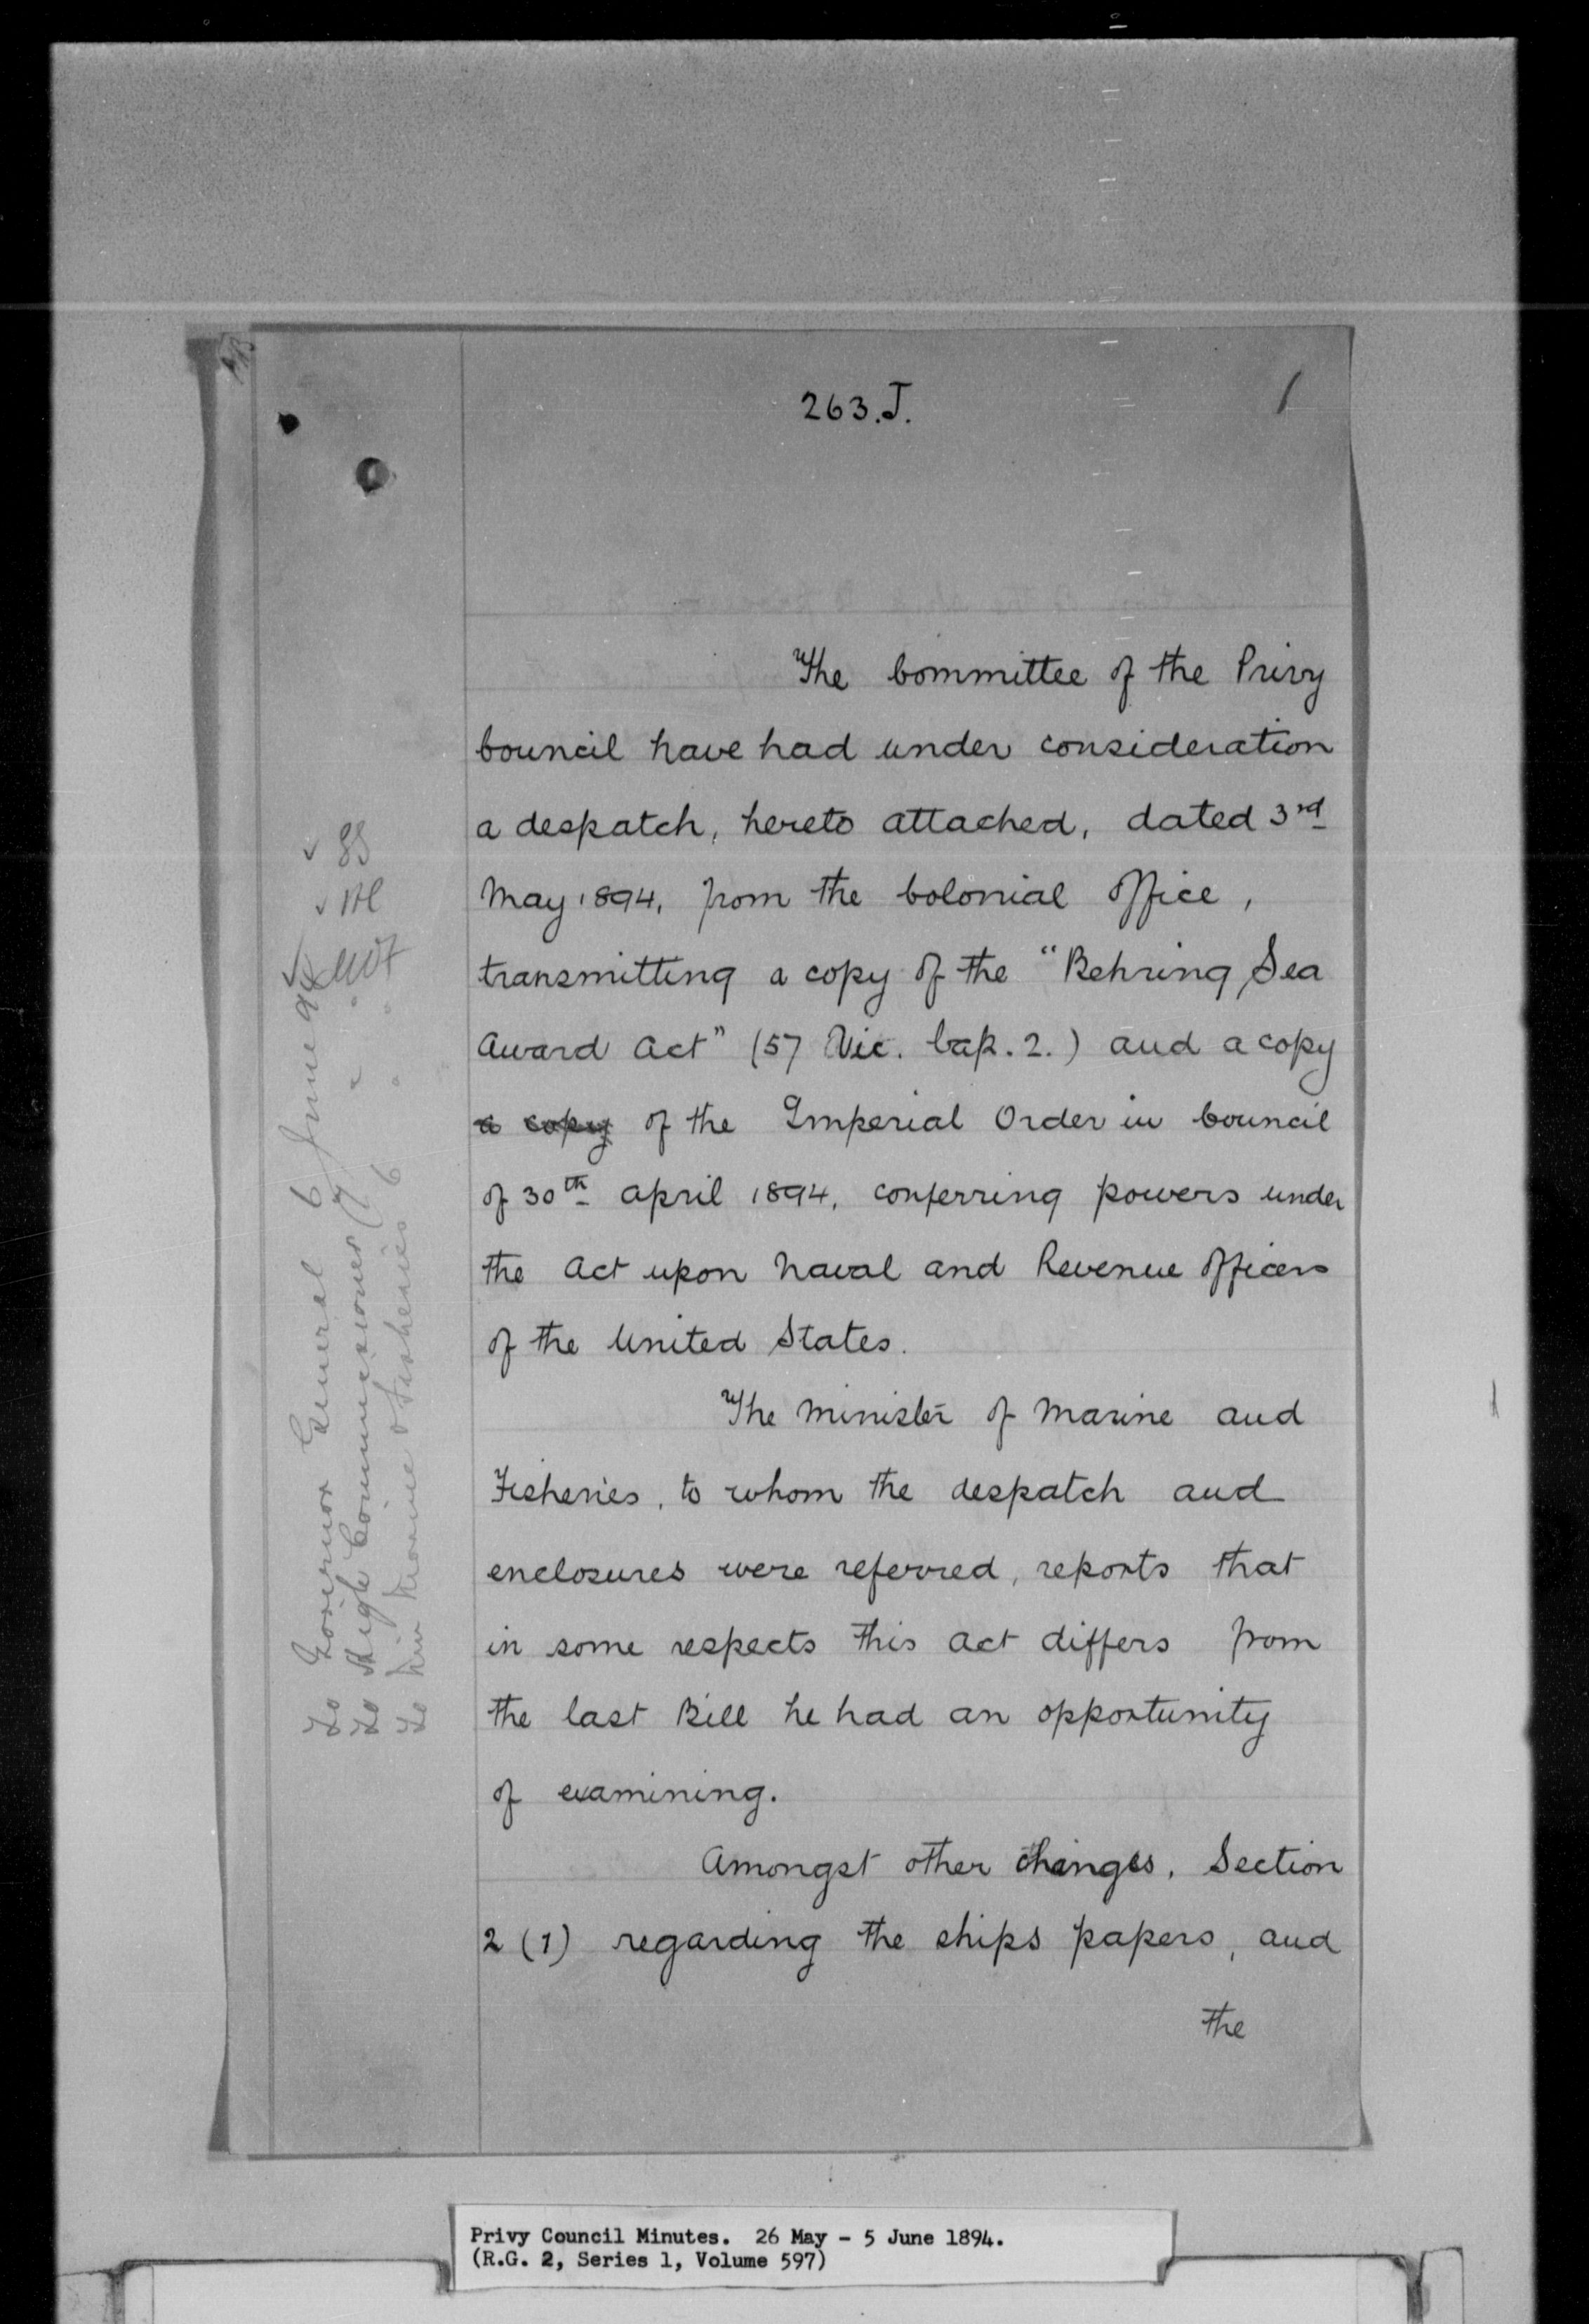 263.J.
1
The Committee of the Privy
Council have had under consideration
a despatch, hereto attached, dated 3rd
May 1894, from the Colonial Office,
transmitting a copy of the "Behring Sea
Award Act" (57 Vic. Cap. 2.) and a copy
a copy of the Imperial Order in Council
of 30th April 1894, conferring powers under
the Act upon Naval and Revenue Officers
of the United States.
The Minister of Marine and
Fisheries, to whom the despatch and
enclosures were referred, reports that
in some respects this Act differs from
the last Bill he had an opportunity
of examining.
Amongst other changes, Section
2 (1) regarding the ships papers, and
the
To Governor General 6 June 94
To High Commissioner 7 " "
To Min Marine & Fisheries 6 " "
Privy Council Minutes. 26 May - 5 June 1894.
(R.G. 2, Series 1, Volume 597)